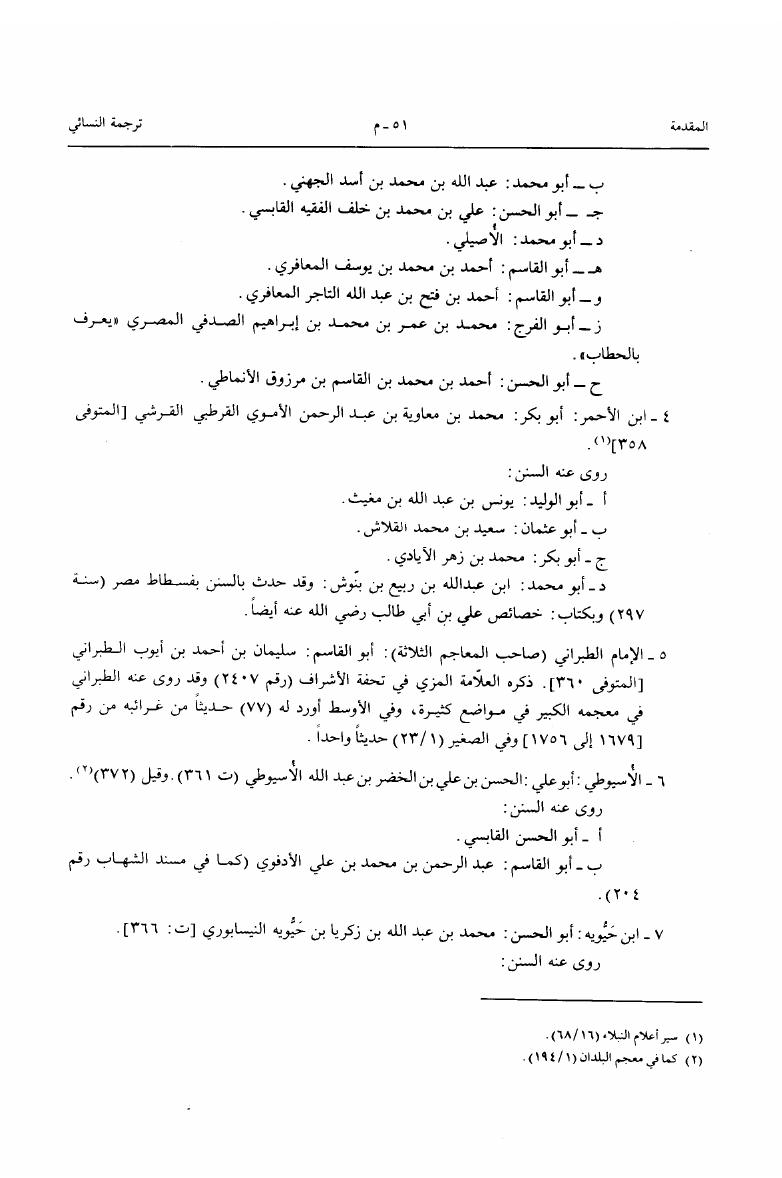 المقدمة ٥١ - م ترجمة النسائي
ب ــ أبو محمد: عبد الله بن محمد بن أسد الجهني.
جـ ــ أبو الحسن: علي بن محمد بن خلف الفقيه القابسي.
د ــ أبو محمد: الأُصيلي.
هـ ــ أبو القاسم: أحمد بن محمد بن يوسف المعافري.
و ــ أبو القاسم: أحمد بن فتح بن عبد الله التاجر المعافري.
ز ــ أبو الفرج: محمد بن عمر بن محمد بن إبراهيم الصدفي المصري «يعرف
بالحطاب».
ح ــ أبو الحسن: أحمد بن محمد بن القاسم بن مرزوق الأنماطي.
٤ - ابن الأحمر: أبو بكر: محمد بن معاوية بن عبد الرحمن الأموي القرطبي القرشي [المتوفى
٣٥٨](١).
روى عنه السنن:
أ - أبو الوليد: يونس بن عبد الله بن مغيث.
ب - أبو عثمان: سعيد بن محمد القلاش.
ج - أبو بكر: محمد بن زهر الأيادي.
د - أبو محمد: ابن عبدالله بن ربيع بن بنّوش: وقد حدث بالسنن بفسطاط مصر (سنة
٢٩٧) وبكتاب: خصائص علي بن أبي طالب رضي الله عنه أيضاً.
٥ - الإمام الطبراني (صاحب المعاجم الثلاثة): أبو القاسم: سليمان بن أحمد بن أيوب الطبراني
[المتوفى ٣٦٠]. ذكره العلّامة المزي في تحفة الأشراف (رقم ٢٤٠٧) وقد روى عنه الطبراني
في معجمه الكبير في مواضع كثيرة، وفي الأوسط أورد له (٧٧) حديثاً من غرائبه من رقم
[١٦٧٩ إلى ١٧٥٦] وفي الصغير (٢٣/١) حديثاً واحداً.
٦ - الأُسيوطي: أبو علي: الحسن بن علي بن الخضر بن عبد الله الأُسيوطي (ت ٣٦١). وقيل (٣٧٢)(٢).
روى عنه السنن:
أ - أبو الحسن القابسي.
ب - أبو القاسم: عبد الرحمن بن محمد بن علي الأدفوي (كما في مسند الشهاب رقم
٢٠٤).
٧ - ابن حَيُّويه: أبو الحسن: محمد بن عبد الله بن زكريا بن حَيُّويه النيسابوري [ت: ٣٦٦].
روى عنه السنن:
(١) سير أعلام النبلاء (٦٨/١٦).
(٢) كما في معجم البلدان (١٩٤/١).